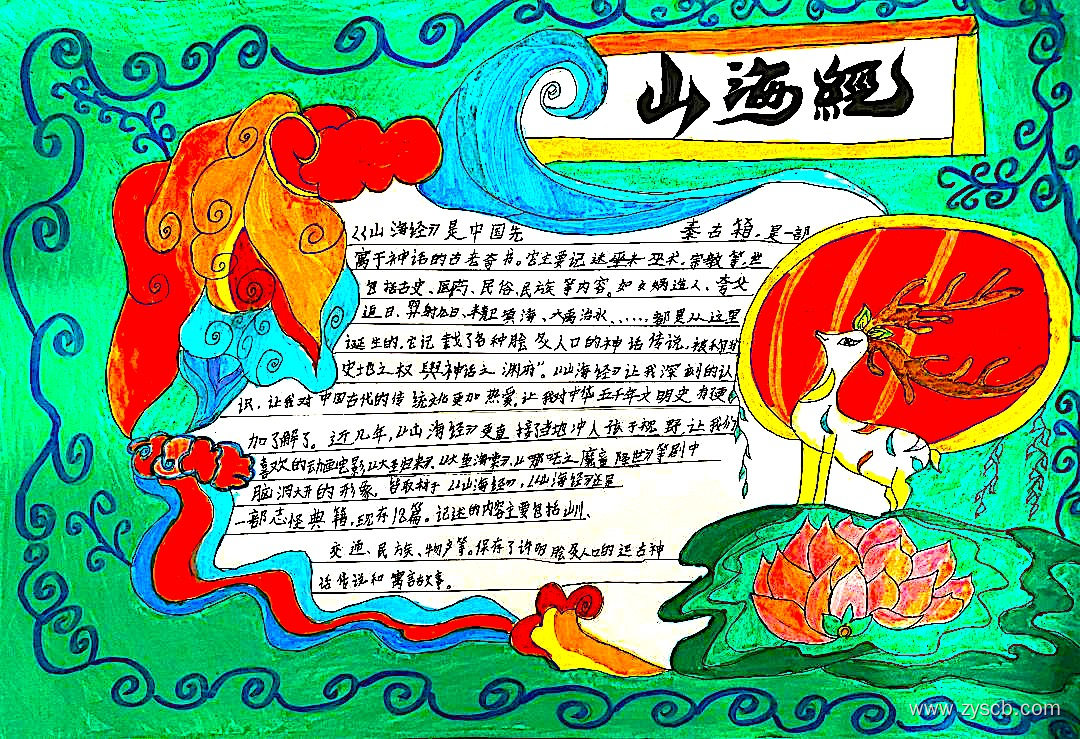 山海經
《山海经》是中国先 秦古籍,是一部
富于神话的古老奇书。它主要记述 巫术,宗教等,也
包括古史、医药、民俗、民族等内容。如女娲造人、夸父
追日、羿射九日、精卫填海、大禹治水、......,都是从这里
诞生的,它记载了各种脍及人口的神话传说,被称为
史地之权 舆神话之渊府"。《山海经》让我深刻的认
识,让我对中国古代的传统文化更加热爱,让我对中华五千年文明史有更
加了解了。近几年,《山海经》更直接地冲人孩于视野,让我们
喜欢的动画电影《大圣归来》,《大鱼海棠》,《哪吒之魔童降世》等剧中
脑洞大开的形象,皆取材于《山海经》,《山海经》还是
一部志怪典籍,现存18篇。记述的内容主要包括山川、
交通、民族、物产等。保存了许多脍及人口的远古神
话传说和寓言故事。
www.zyscb.com